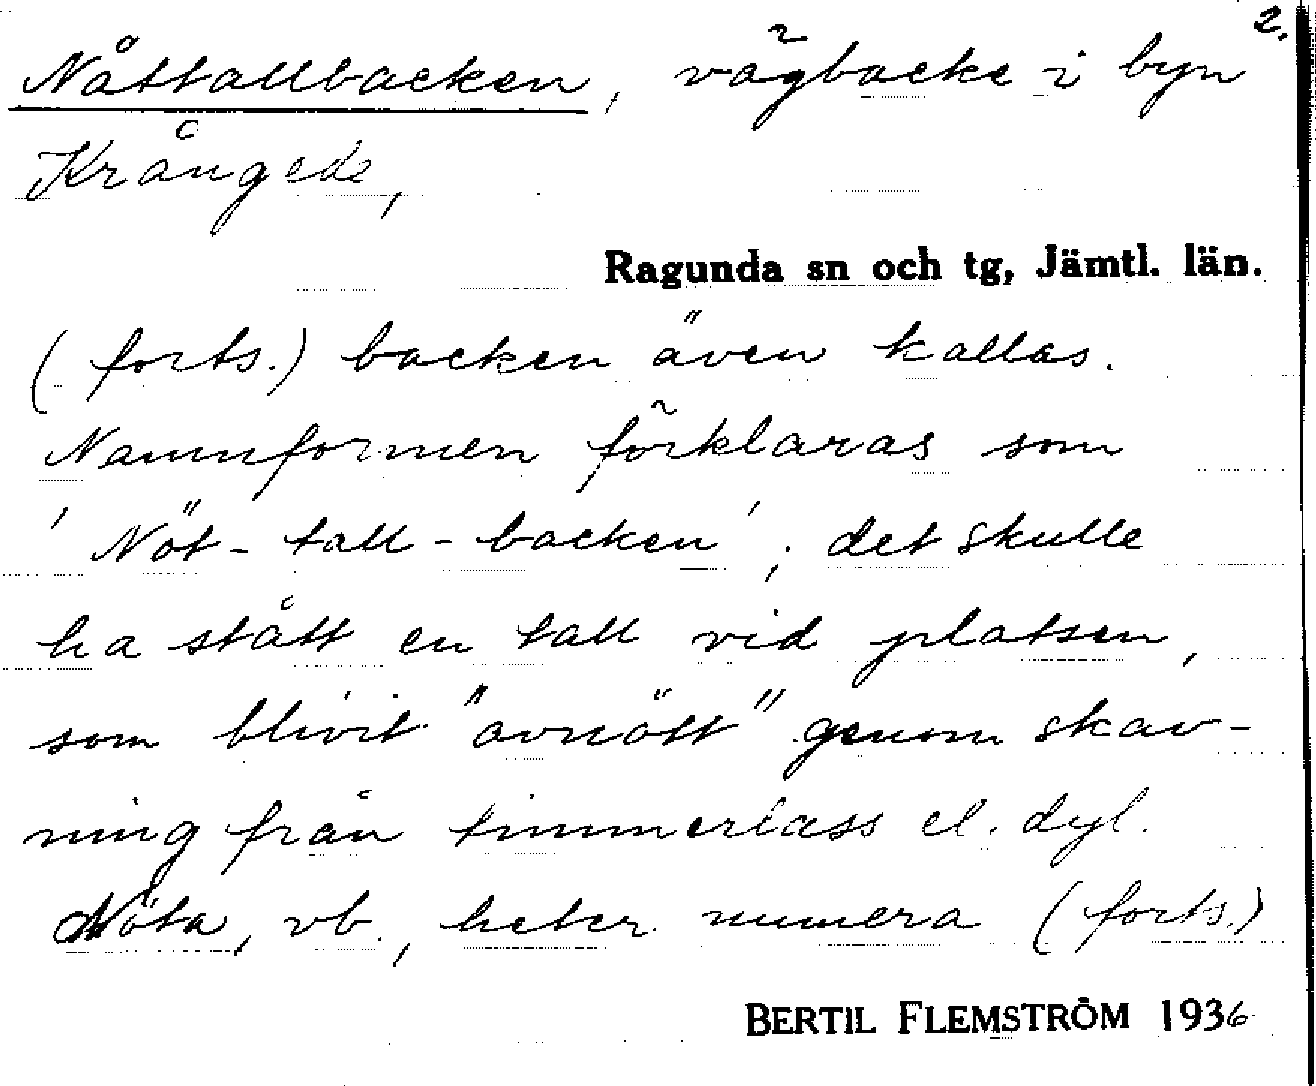 2.
Nåttallbacken, vägbacke i byn
Krångede,
Ragunda sn och tg, Jämtl. län.
(forts.) backen även kallas.
Namnformen förklaras som
'Nöt-tall-backen'; det skulle
ha stått en tall vid platsen,
som blivit "avnött" genom skav-
ning från timmerlass el. dyl.
Nöta, vb., heter numera (forts.)
BERTIL FLEMSTRÖM 1936